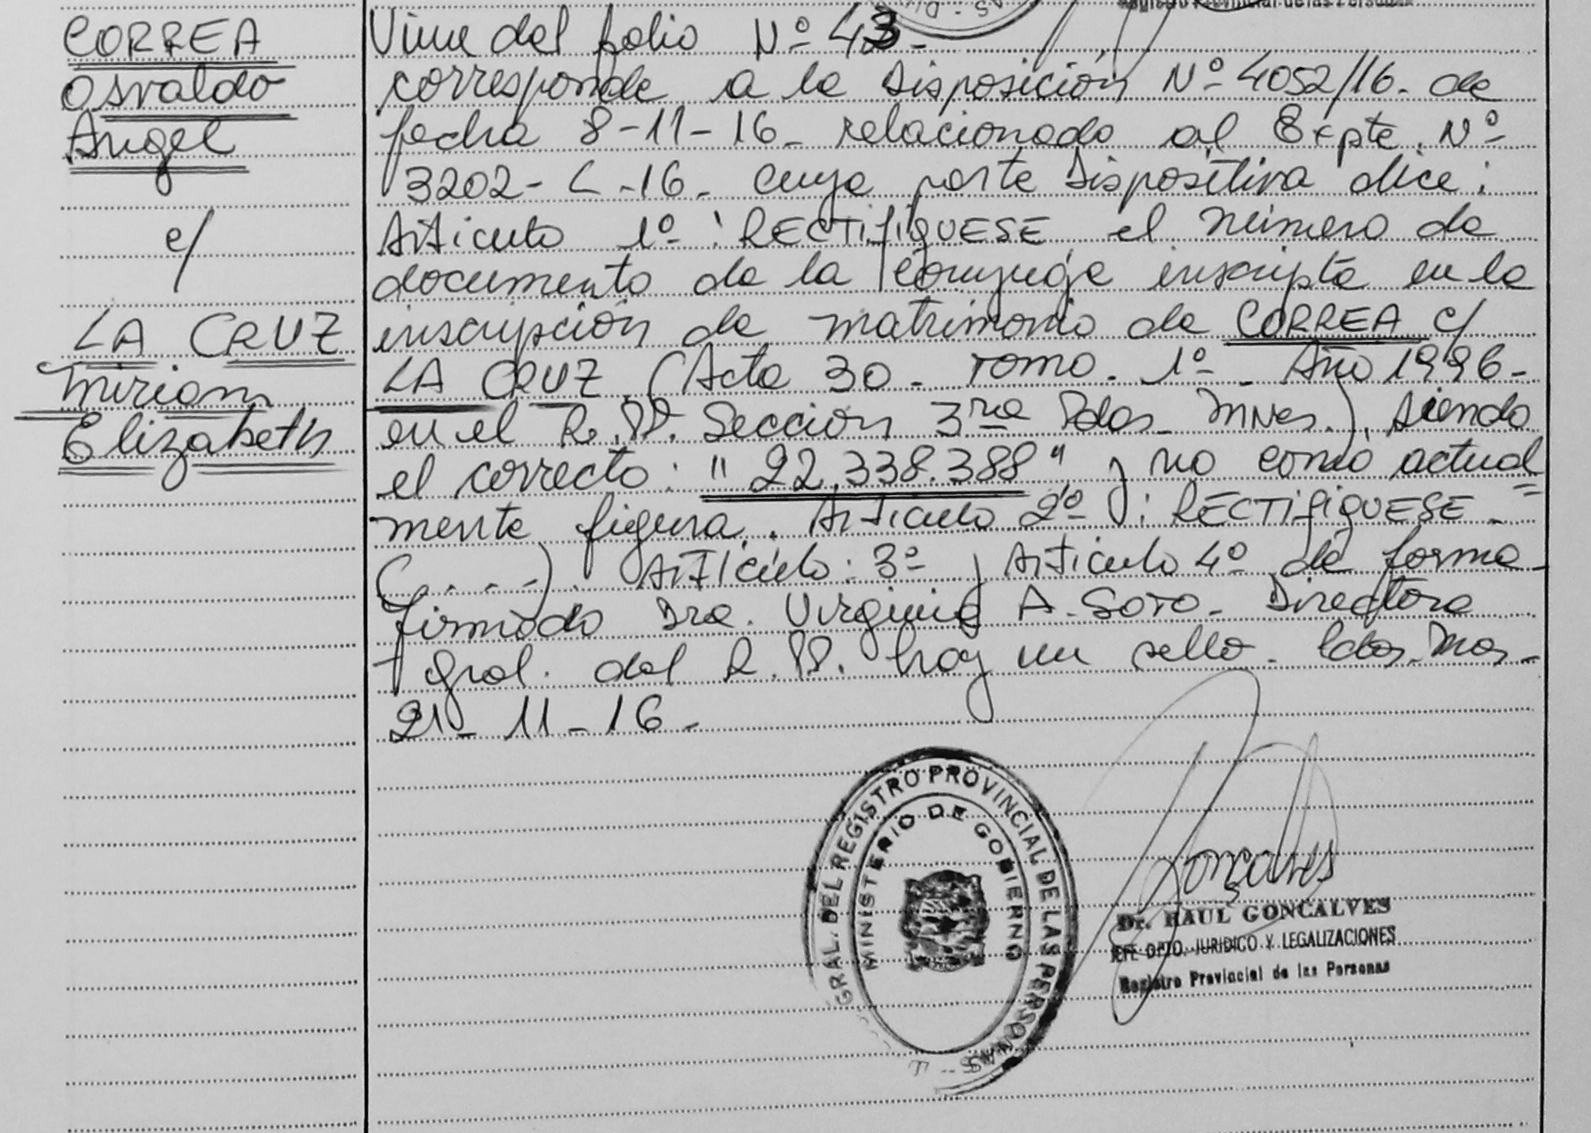 CORREA
Osvaldo
Angel
c/
LA CRUZ
Miriam
Elizabeth
Viene del folio Nº 43-
corresponde a la Disposición Nº 4052/16- de
fecha 8-11-16- relacionado al Expte. Nº
3202-L-16- cuya parte Dispositiva dice:
Artículo 1º: RECTIFIQUESE el número de
documento de la conyuge inscripta en la
inscripción de matrimonio de CORREA c/
LA CRUZ (Acta 30- Tomo- 1º- Año 1996-
en el R.PP. Sección 3ra Pdas- Mnes.), siendo
el correcto: "22.338.388" y no como actual
mente figura. Artículo 2º: RECTIFIQUESE-
(....-). Artículo: 3º y Artículo 4º de forma-
firmado Dra. Virginia A. SOTO- Directora
Gral. del R.PP. hay un sello- Pdas-Mnes-
21-11-16-
GRAL. DEL REGISTRO PROVINCIAL DE LAS PERSONAS
MINISTERIO DE GOBIERNO
Goncalves
Dr. RAUL GONCALVES
JEFE DPTO. JURIDICO Y LEGALIZACIONES
Registro Provincial de las Personas